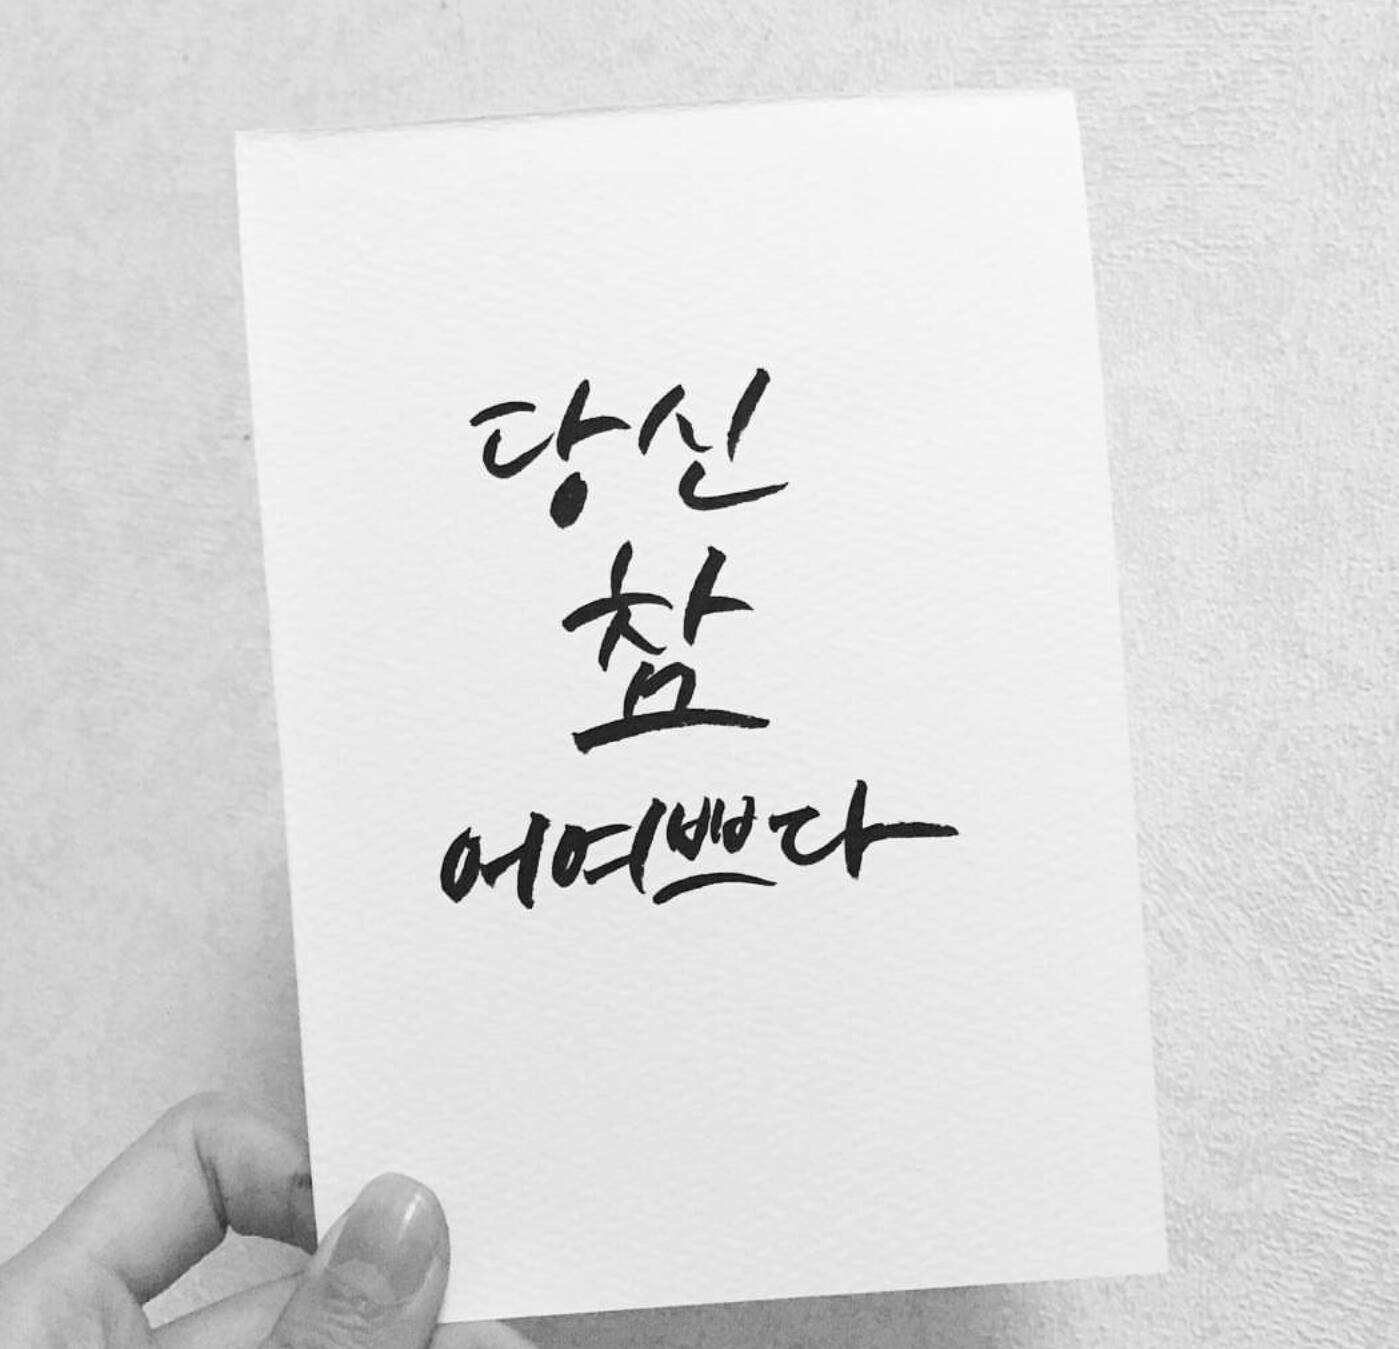 당신
참
어여쁘다